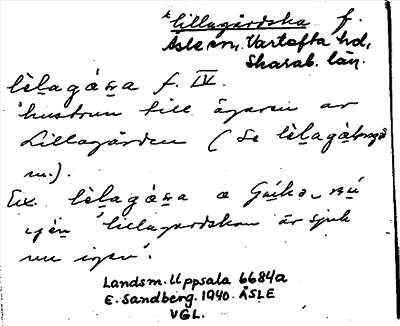 lillagårdska f.
Åsle sn, Vartofta hd,
Skarab. län.
lèlagása f. IV.
'hustrun till ägaren av
Lillagården (Se
m.).
Ex. lèlagása æ nú
ijén 'lillagårdskan är sjuk
nu igen'.
Landsm. Uppsala 6684a
E. Sandberg. 1940. ÅSLE
VGL.